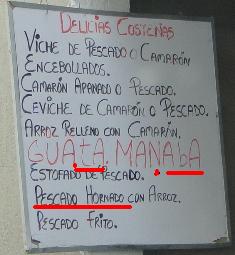 DELICIAS COSTEÑAS
VICHE DE PESCADO O CAMARÓN
ENCEBOLLADOS.
CAMARÓN APANADO O PESCADO.
CEVICHE DE CAMARÓN O PESCADO.
ARROZ RELLENO CON CAMARÓN.
GUATA MANABA
ESTOFADO DE PESCADO.
PESCADO HORNADO CON ARROZ.
PESCADO FRITO.